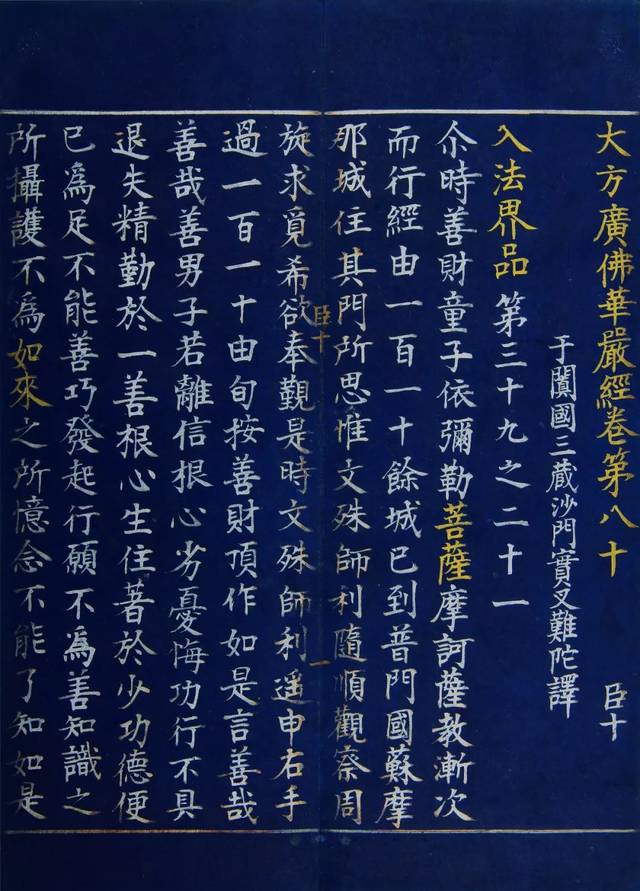 大方廣佛華嚴經卷第八十 臣十
于闐國三藏沙門實叉難陀譯
入法界品第三十九之二十一
尒時善財童子依彌勒菩薩摩訶薩教漸次
而行經由一百一十餘城已到普門國蘇摩
那城住其門所思惟文殊師利隨順觀察周
臣十 一
旋求覓希欲奉覲是時文殊師利遥申右手
過一百一十由旬按善財頂作如是言善哉
善哉善男子若離信根心劣憂悔功行不具
退失精勤於一善根心生住著於少功德便
已為足不能善巧發起行願不為善知識之
所攝護不為如來之所憶念不能了知如是